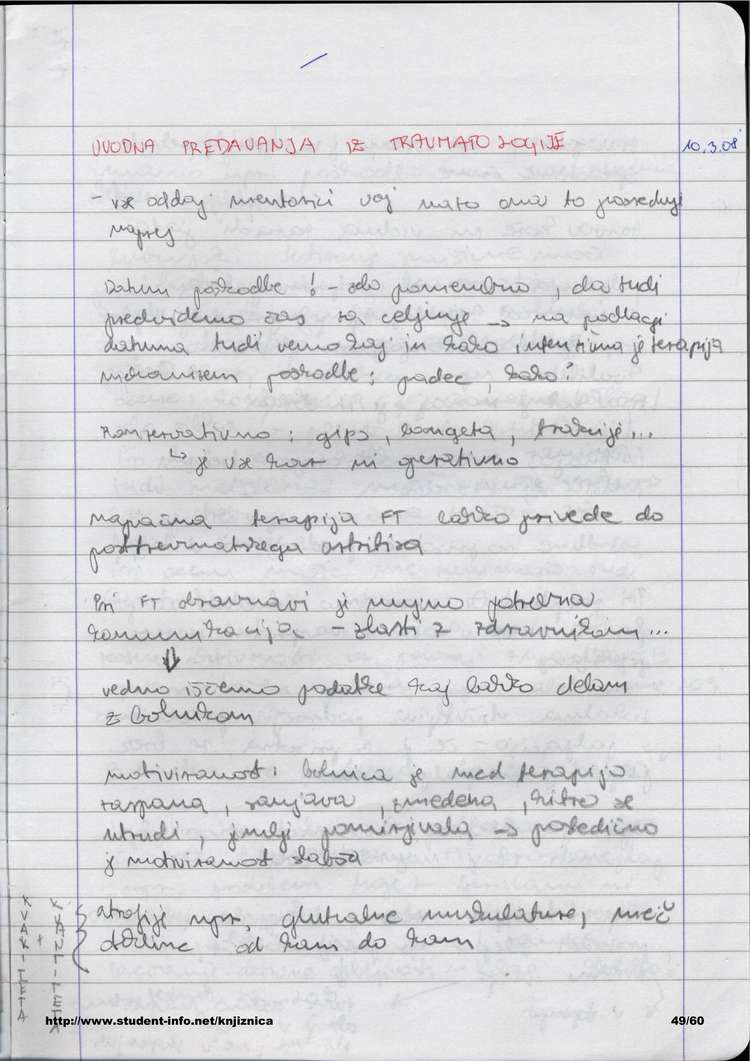 UVODNA PREDAVANJA IZ TRAVMATOLOGIJE 10.3.08
- vse oddaj mentorici vaj nato ona to posreduje
naprej
Datum poškodbe! - zelo pomembno, da tudi
predvidemo čas za celjenje → na podlagi
datuma tudi vemo kaj in kako intenzivna je terapija
mehanizem poškodbe; padec, kako?
konzervativno: gips, longeta, trakcije...
↳ je vse kar ni operativno
napačna terapija FT lahko privede do
posttravmatskega artritisa
Pri FT obravnavi je nujno potrebna
komunikacija - zlasti z zdravnikom...
⇓
vedno iščemo podatke kaj lahko delam
z bolnikom
motiviranost: bolnica je med terapijo
zaspana, sanjava, zmedena, hitro se
utrudi, pomirjevala → posledično
je motiviranost slabša
atrofije npr. glutealne muskulature, meč
od kam do kam
KVALITETA
+
KVANTITETA
http://www.student-info.net/knjiznica 49/60